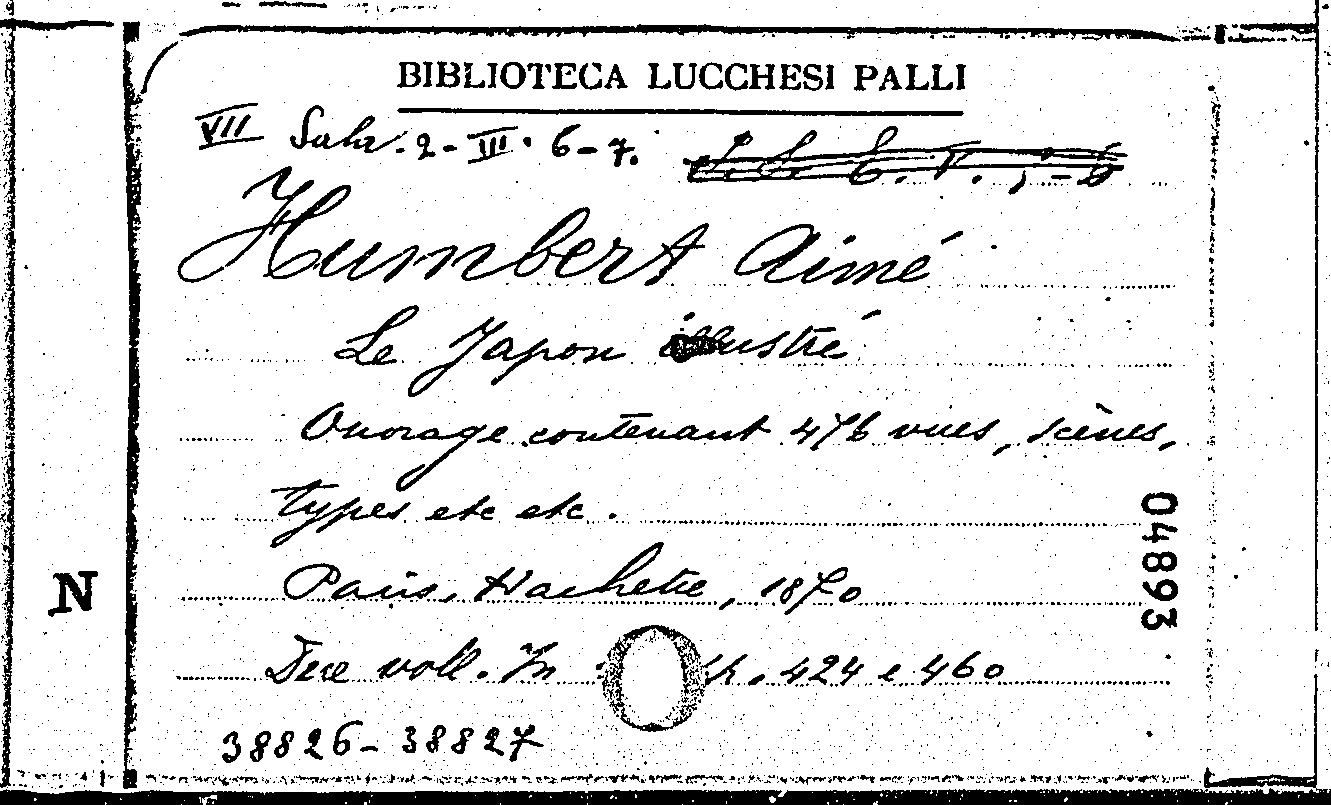 BIBLIOTECA LUCCHESI PALLI
VII Sala. 2 - III. 6-7.
Humbert Aimé
Le Japon illustré
Ouvrage contenant 476 vues, scènes,
types etc etc.
Paris, Hachette, 1870
Due voll. In p. 424 e 460
38826-38827
N
04893